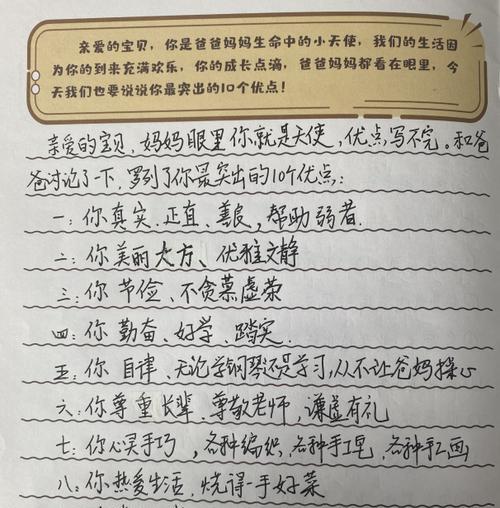 亲爱的宝贝，你是爸爸妈妈生命中的小天使，我们的生活因
为你的到来充满欢乐，你的成长点滴，爸爸妈妈都看在眼里，今
天我们也要说说你最突出的10个优点！
亲爱的宝贝，妈妈眼里你就是天使，优点写不完。和爸
爸讨论了一下，罗列了你最突出的10个优点：
一：你真实、正直、善良，帮助弱者.
二：你美丽大方、优雅文静
三：你 节俭、不贪慕虚荣
四：你 勤奋、好学、踏实.
五：你 自律、无论学钢琴还是学习，从不让爸妈操心
六：你尊重长辈、尊敬老师，谦虚有礼
七：你心灵手巧，各种编织，各种手工皂，各种手工画
八：你热爱生活，烧得一手好菜